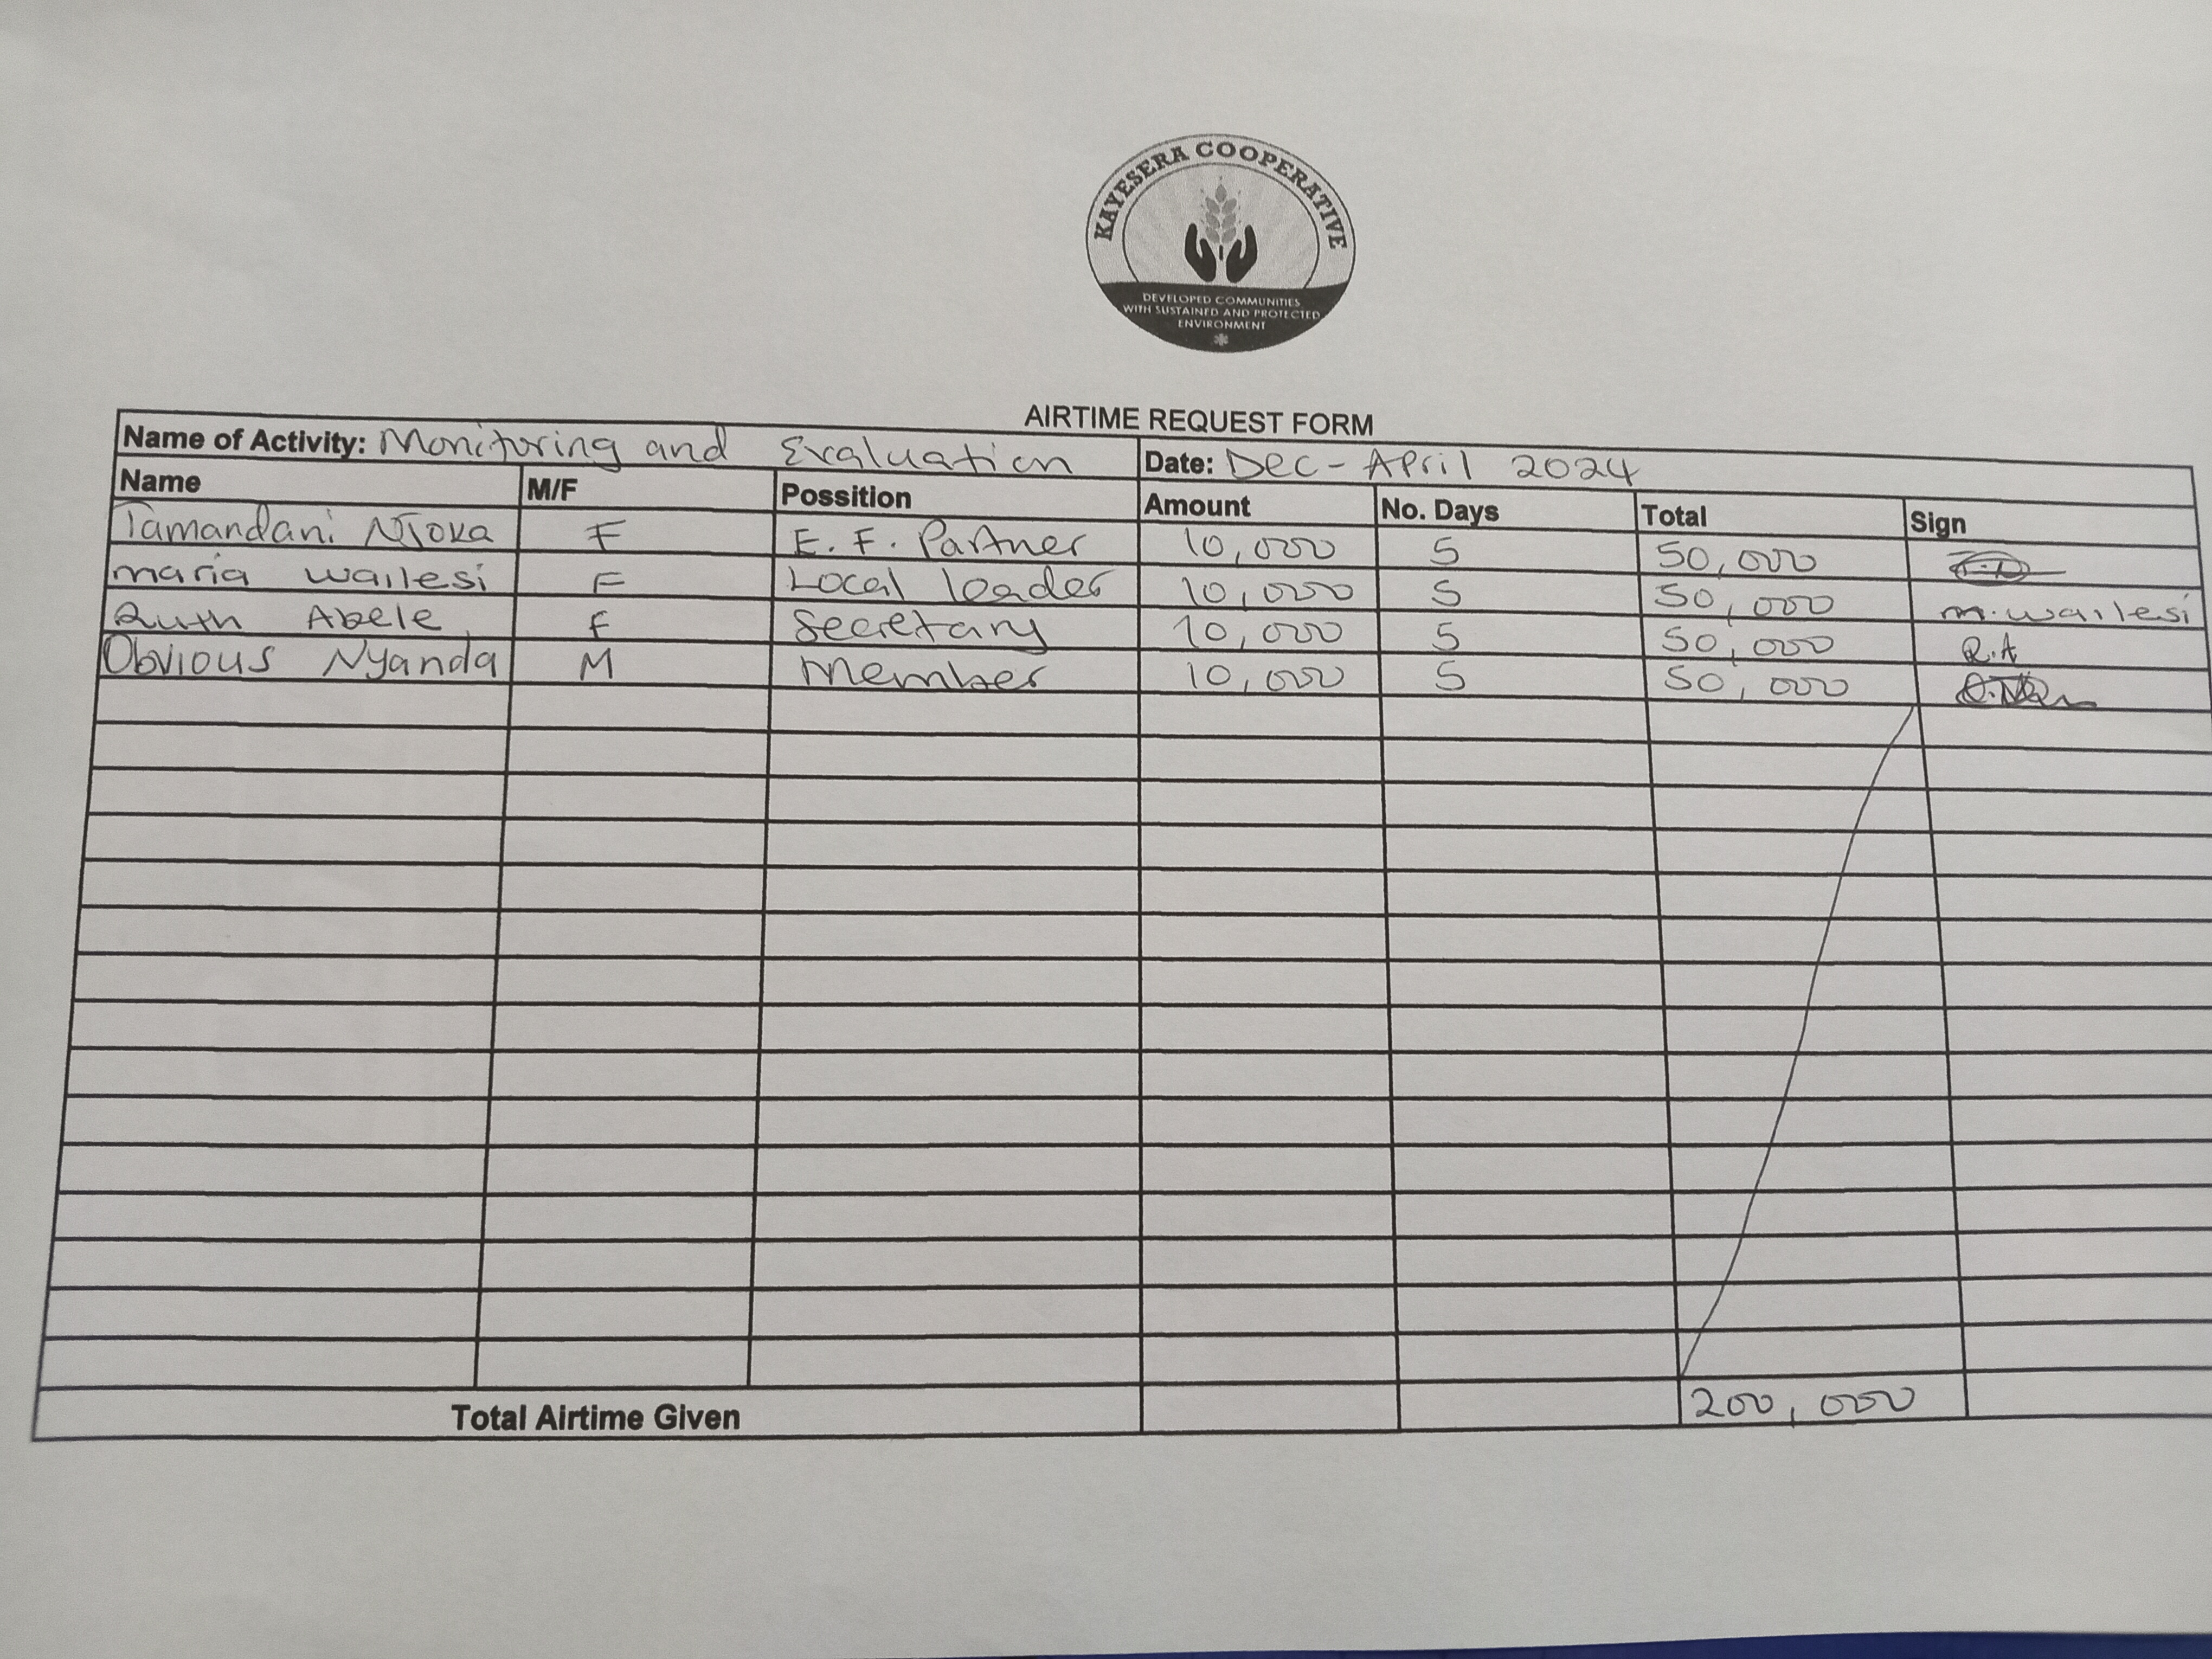 KAYESERA COOPERATIVE
DEVELOPED COMMUNITIES
WITH SUSTAINED AND PROTECTED
ENVIRONMENT
AIRTIME REQUEST FORM
Name of Activity: Monitoring and Evaluation Date: Dec - April 2024
Name M/F Possition Amount No. Days Total Sign
Tamandani Njoka F E. F. Partner 10,000 5 50,000
maria wailesi F Local leader 10,000 5 50,000 m. wailesi
Ruth Abele F Secretary 10,000 5 50,000 R.A
Obvious Nyanda M Member 10,000 5 50,000
Total Airtime Given 200,000